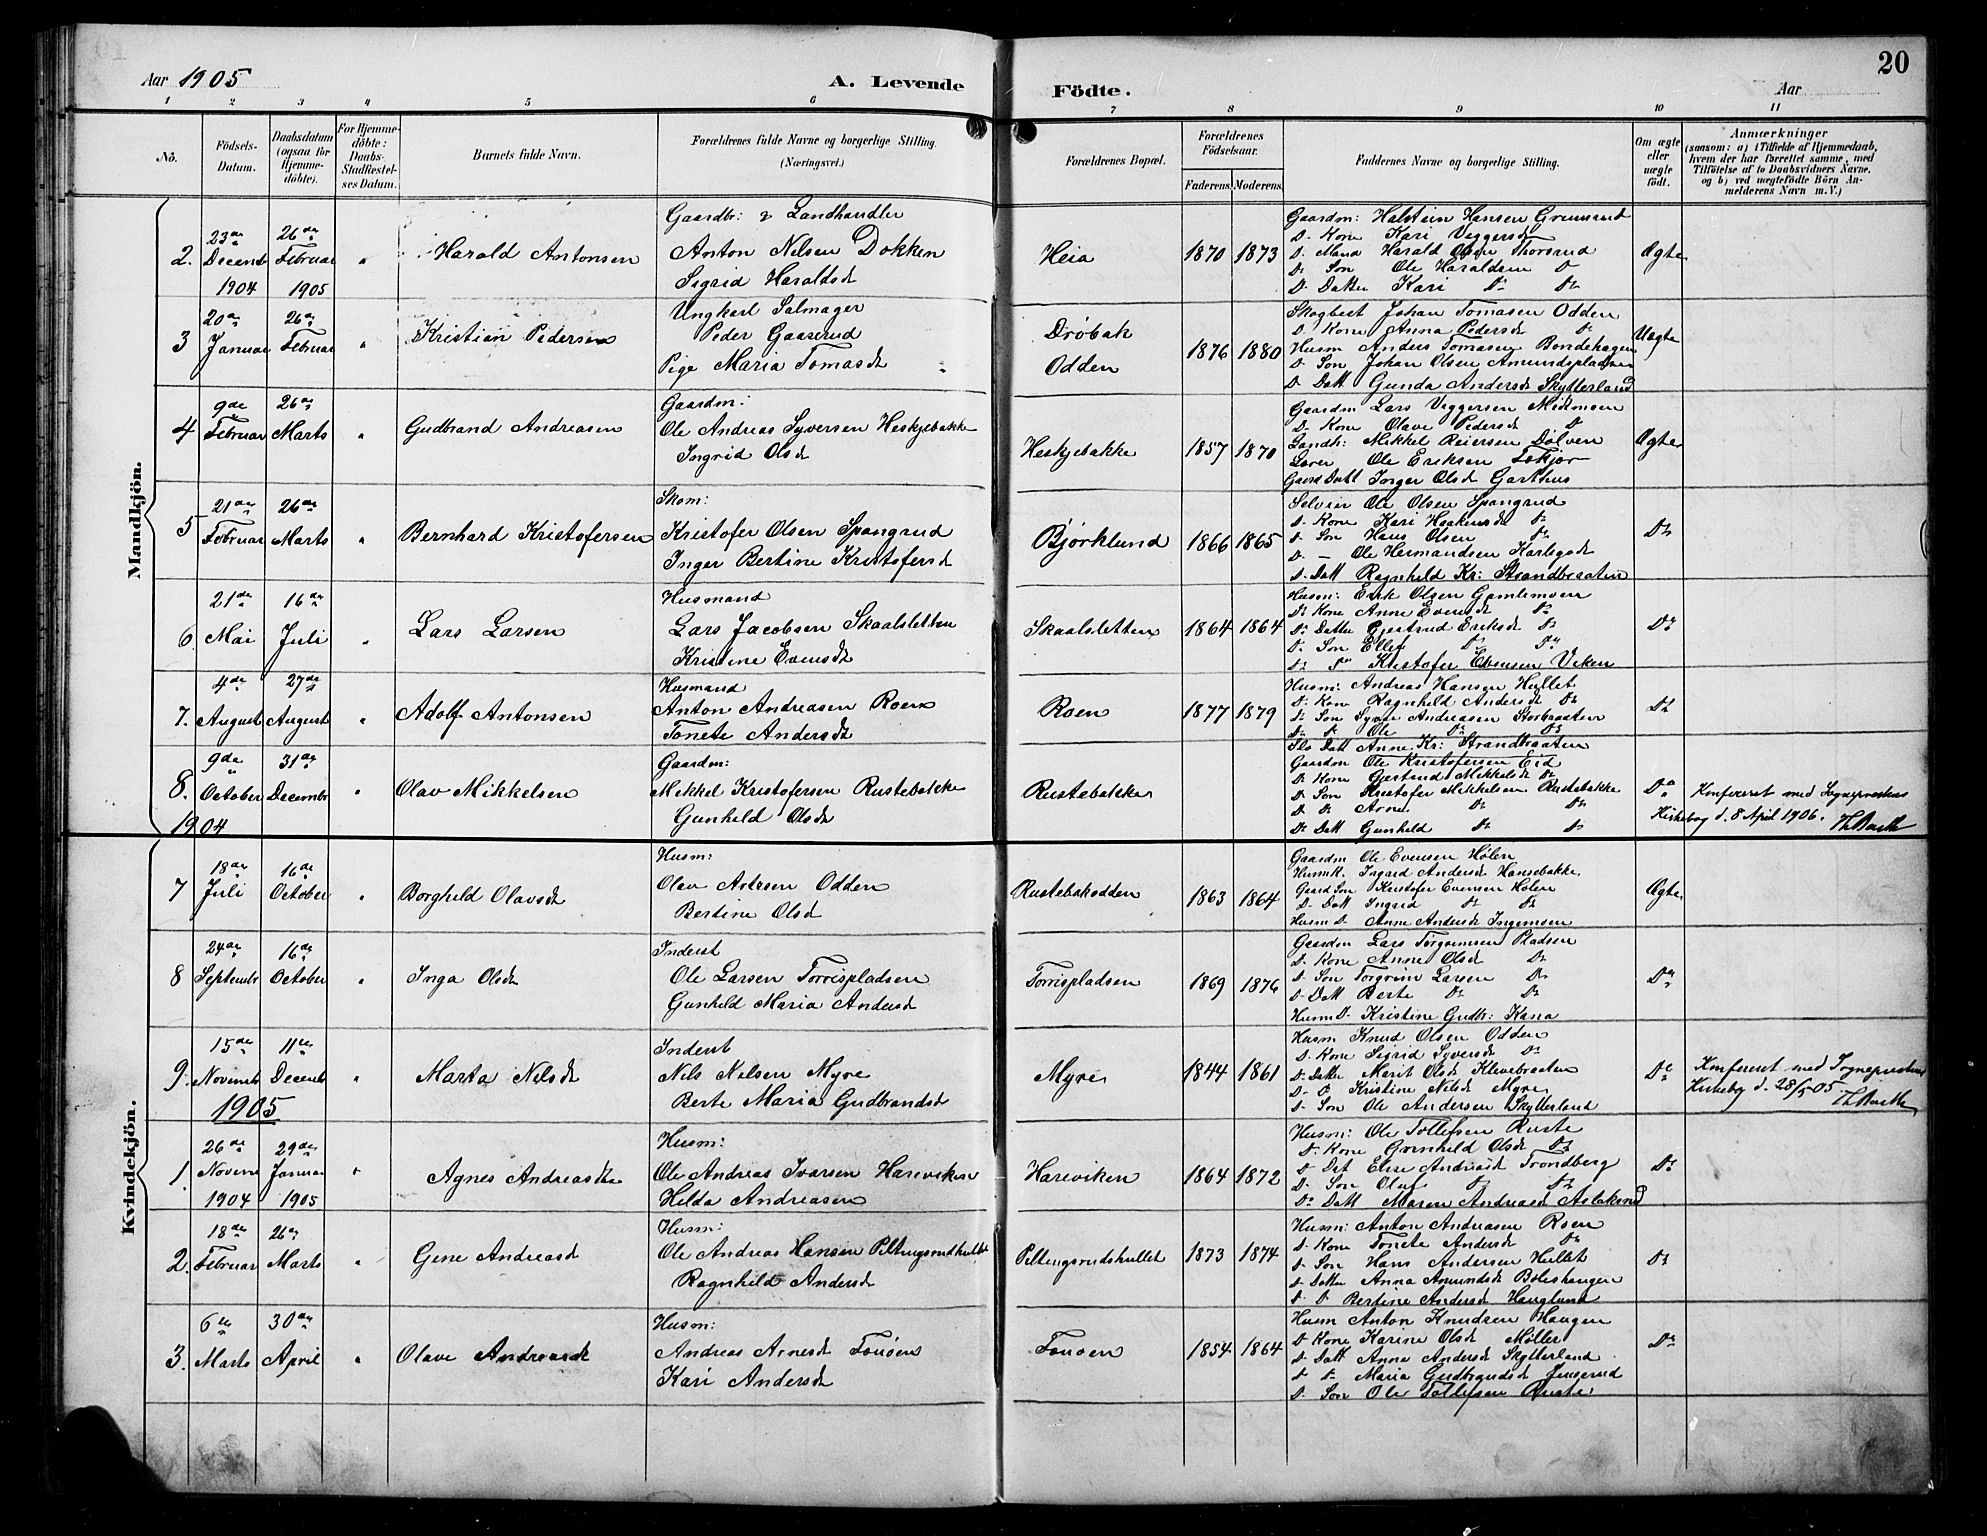 20
Aar 1905
A. Levende
Födte.
Aar
1 2 3 4 5 6 7 8 9 10 11
No.
Födsels-Datum.
Daabsdatum (ogsaa for Hjemme-döbte).
For Hjemme-döbte: Daabs-Stadfæstel-ses Datum.
Barnets fulde Navn.
Forældrenes fulde Navne og borgerlige Stilling. (Næringsvei.)
Forældrenes Bopæl.
Forældrenes Födselsaar.
Faderens. Moderens.
Faddernes Navne og borgerlige Stilling.
Om ægte eller uægte födt.
Anmærkninger (saasom: a) i Tilfælde af Hjemmedaab, hvem der har forrettet samme, med Tilföielse af to Daabsvidners Navne. og b) ved uægtefödte Börn An-melderens Navn m. V.)
Mandkjön.
2. 23de Decemb 1904
26de Februar 1905
"
Harald Antonsen
Gaardbr: & Landhandler
Anton Nilsen Dokken
Sigrid Haraldsd
Heia
1870 1873
Gaardm: Halstein Hansen Grimsrud
Do Kone Kari Veggersd
Do Mand Harald Olsen Thorsrud
Do Son Ole Haraldsen Do
Do Datter Kari Do Do
Ægte
3 20de Januar
26de Februar
"
Kristian Pedersen
Ungkarl Salmager
Peder Gaaserud
Pige Maria Tomasd
Drøbak
Odden
1876 1880
Skogbest Johan Tomasen Odden
Do Kone Anna Pedersd Do
Husm Anders Tomasen Bondehagen
Do Son Johan Olsen Amundspladsen
Do Datt Gunda Andersd Skytterland
Uægte
4 9de Februar
26de Marts
"
Gudbrand Andreasen
Gaardm:
Ole Andreas Syversen Heskjebakke
Ingrid Olsd
Heskjebakke
1857 1870
Gaardm Lars Veggersen Midtmoen
Do Kone Olave Pedersd Do
Landh: Mikkel Reiersen Dølven
Lærer Ole Eriksen
Gaard Datt Inger Olsd Garthus
Ægte
5 21de Februar
26de Marts
"
Bernhard Kristofersen
Skom:
Kristofer Olsen Spangrud
Inger Bertine Kristofersd
Bjørklund
1866 1865
Selveier Ole Olsen Spangrud
Do Kone Kari Haakensd Do
Do Son Hans Olsen Do
Do — Ole Hermandsen
Do Datt Ragnhild Kr: Strandbraaten
Do
6 21de Mai
16de Juli
"
Lars Larsen
Husmand
Lars Jacobsen Skaalsletten
Kristine Evensd
Skaalsletten
1864 1864
Husm: Erik Olsen Gamlemoen
Do Kone Anne Evensd Do
Do Datter Gjertrud Eriksd Do
Do Son Ellef Do Do
Do Do Kristofer Evensen Viken
Do
7. 4de August
27de August
"
Adolf Antonsen
Husmand
Anton Andreasen Roen
Tonete Andersd
Roen
1877 1879
Husm: Andreas Hansen Hullet
Do Kone Ragnhild Andersd Do
Do Son Syver Andreasen Storbraaten
Do Do Ole Do Do
Datt Anne Kr: Strandbraaten
Do
8. 9de October
31de Decembr
"
Olav Mikkelsen
Gaardm:
Mikkel Kristofersen Rustebakke
Gunhild Olsd
Rustebakke
Gaardm Ole Kristofersen Eid
Do Kone Gjertrud Mikkelsd Do
Do Son Kristofer Mikkelsen Rustebakke
Do Do Arne Do Do
Do Datt Gunhild Do Do
Do
Konfereret med Sogneprestens
Kirkebog d. 8 April 1906.
Kvindekjön.
1904
7 18de Juli
16de October
"
Borghild Olavsd
Husm:
Olav Odden
Bertine Olsd
Rustebakodden
1863 1864
Gaardm Ole Evensen Hølen
Husm K. Ingard Andersd Hansebakke
Gaard Son Kristofer Evensen Hølen
Do Datt Ingrid Do Do
Husm Do Anne Andersd Ingemoen
Ægte
8 24de Septembr
16de October
"
Inga Olsd
Inderst
Ole Larsen Torrispladsen
Gunhild Maria Andersd
Torrispladsen
1869 1876
Gaardm Lars Torgrimsen Pladsen
Do Kone Anne Olsd Do
Do Son Torgrim Larsen Do
Do Datt Berte Do Do
Husm Do Kristine Gudbr: Kasa
Do
9. 15de Novemb
11te Decemb
"
Marta Nilsd
Inderst
Nils Nilsen Myre
Berte Maria Gudbrandsd
Myre
1844 1861
Husm Knud Olsen Odden
Do Kone Sigrid Syversd Do
Do Datter Marit Olsd Klevebraaten
Do Do Kristine Nilsd Myre
Do Son Ole Andersen Skytterland
Do
Konfereret med Sogneprestens
Kirkebog d. 28/5 05
1905
1. 26de Novemb 1904
29de Januar 1905
"
Agnes Andreasd
Husm:
Ole Andreas Ivarsen Hareviken
Helda Andreasen
Hareviken
1864 1872
Husm: Ole Tollefsen Ruste
Do Kone Gunhild Olsd Do
Do Dat Elise Andreasd Trondberg
Do Son Oluf Do Do
Do Datt Maren Andreasd Aslaksrud
Do
2. 18de Februar
26de Marts
"
Gene Andreasd
Husm:
Ole Andreas Hansen Peltingsrudhullet
Ragnhild Andersd
Peltingsrudshullet
1873 1874
Husm: Anton Andreasen Roen
Do Kone Tonete Andersd Do
Do Son Hans Andersen Hullet
Do Datter Anna Amundsd Boleshaugen
Do Do Bertine Andersd Hauglund
Do
3. 6te Marts
30de April
"
Olave Andreasd
Husm:
Andreas Arnesd
Kari Andersd
1854 1864
Husm Anton Knudsen Haugen
Do Kone Karine Olsd Møller
Do Datt Anne Andersd Skytterland
Do Do Maria Gudbrandsd Jenserud
Do Son Ole Tollefsen Ruste
Do